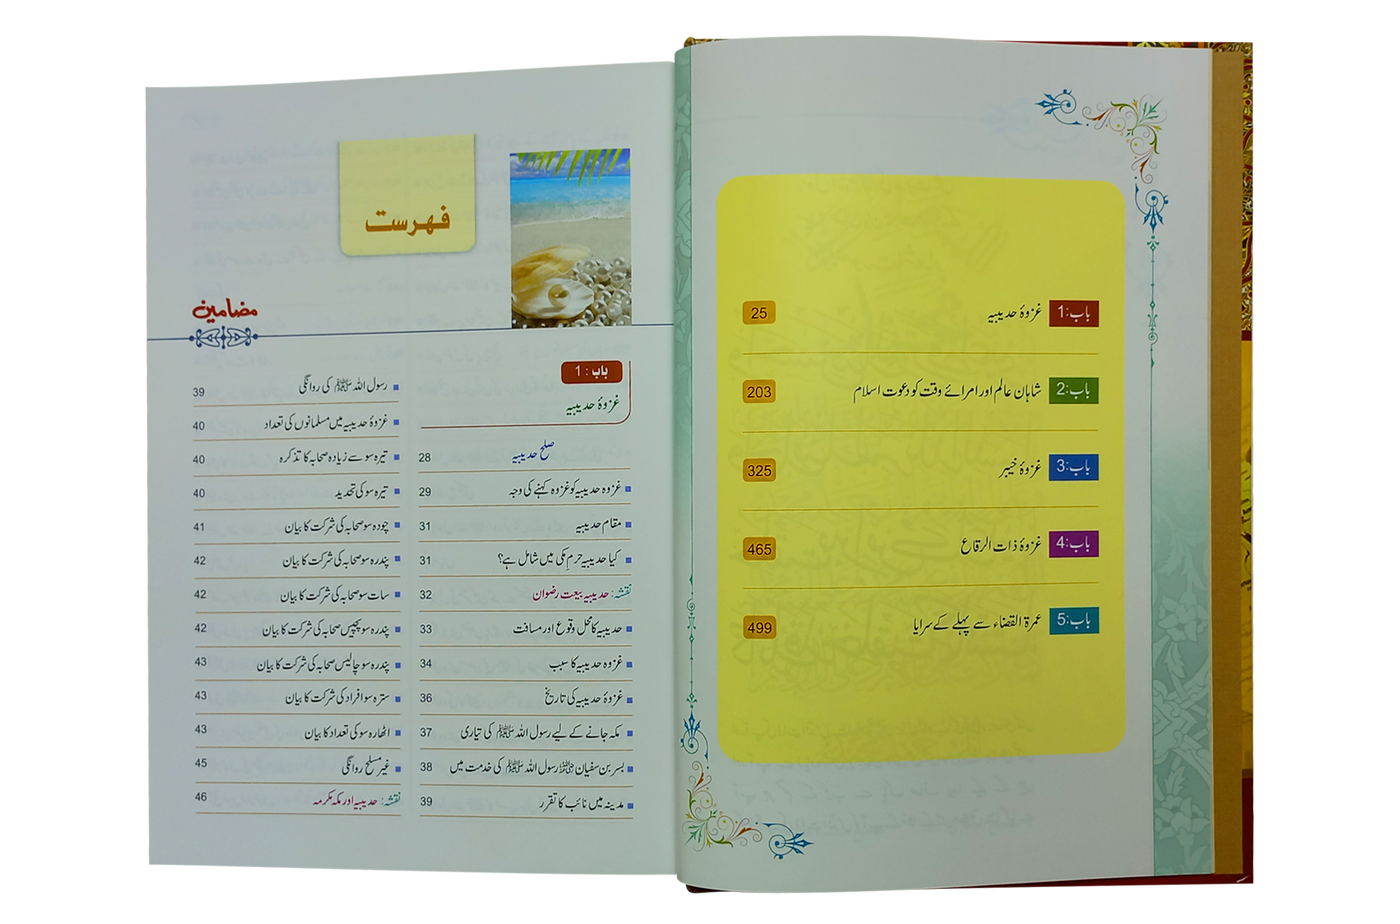 باب:1 غزوۂ حدیبیہ 25
باب:2 شاہان عالم اور امرائے وقت کو دعوت اسلام 203
باب:3 غزوۂ خیبر 325
باب:4 غزوۂ ذات الرقاع 465
باب:5 عمرۃ القضاء سے پہلے کے سرایا 499
فہرست
مضامین
باب : 1
غزوۂ حدیبیہ
صلح حدیبیہ 28
غزوہ حدیبیہ کو غزوہ کہنے کی وجہ 29
مقام حدیبیہ 31
کیا حدیبیہ حرمِ مکی میں شامل ہے؟ 31
نقشہ: حدیبیہ بیعت رضوان 32
حدیبیہ کا محل وقوع اور مسافت 33
غزوہ حدیبیہ کا سبب 34
غزوۂ حدیبیہ کی تاریخ 36
مکہ جانے کے لیے رسول اللہ ﷺ کی تیاری 37
بسر بن سفیان رضی اللہ عنہ رسول اللہ ﷺ کی خدمت میں 38
مدینہ میں نائب کا تقرر 39
رسول اللہ ﷺ کی روانگی 39
غزوۂ حدیبیہ میں مسلمانوں کی تعداد 40
تیرہ سو سے زیادہ صحابہ کا تذکرہ 40
تیرہ سو کی تحدید 40
چودہ سو صحابہ کی شرکت کا بیان 41
پندرہ سو صحابہ کی شرکت کا بیان 42
سات سو صحابہ کی شرکت کا بیان 42
پندرہ سو پچیس صحابہ کی شرکت کا بیان 42
پندرہ سو چالیس صحابہ کی شرکت کا بیان 43
سترہ سو افراد کی شرکت کا بیان 43
اٹھارہ سو کی تعداد کا بیان 43
غیر مسلح روانگی 45
نقشہ: حدیبیہ اور مکہ مکرمہ 46